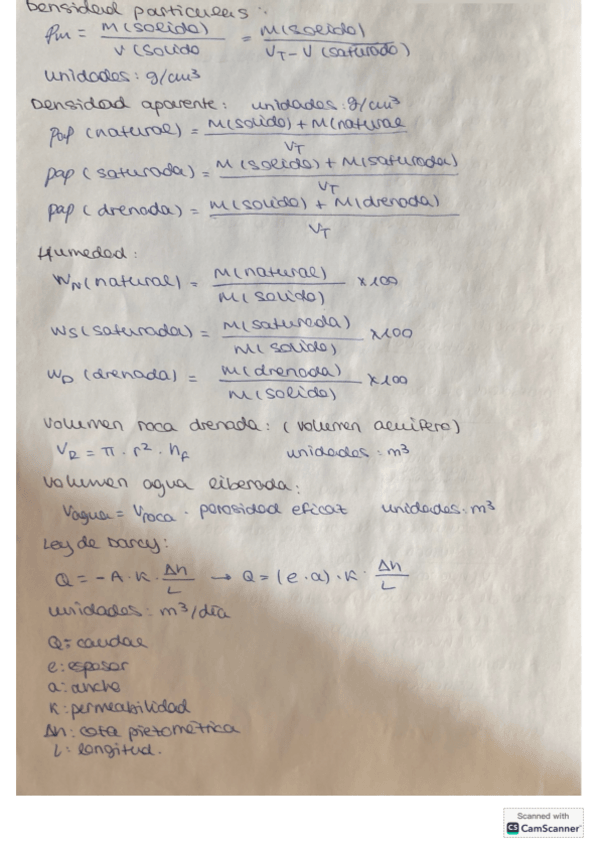 Densidad particulas:
ρm = M(solido) / V(solido = M(solido) / VT - V(saturado)
unidades: g/cm³
Densidad aparente: unidades: g/cm³
ρap (natural) = M(solido) + M(natural / VT
ρap (saturada) = M(solido) + M(saturada) / VT
ρap (drenada) = M(solido) + M(drenada) / VT
Humedad:
WN (natural) = M(natural) / M(solido) x100
WS (saturada) = M(saturada) / M(solido) x100
WD (drenada) = M(drenada) / M(solido) x100
Volumen roca drenada: (volumen acuifero)
VR = π · r² · hf unidades: m³
Volumen agua liberada:
Vagua = Vroca · porosidad eficaz unidades: m³
Ley de Darcy:
Q = -A · K · Δh / L → Q = (e · a) · K · Δh / L
unidades: m³/día
Q = caudal
e: espesor
a: ancho
K: permeabilidad
Δh: cota piezometrica
L: longitud.
Scanned with
CS CamScanner